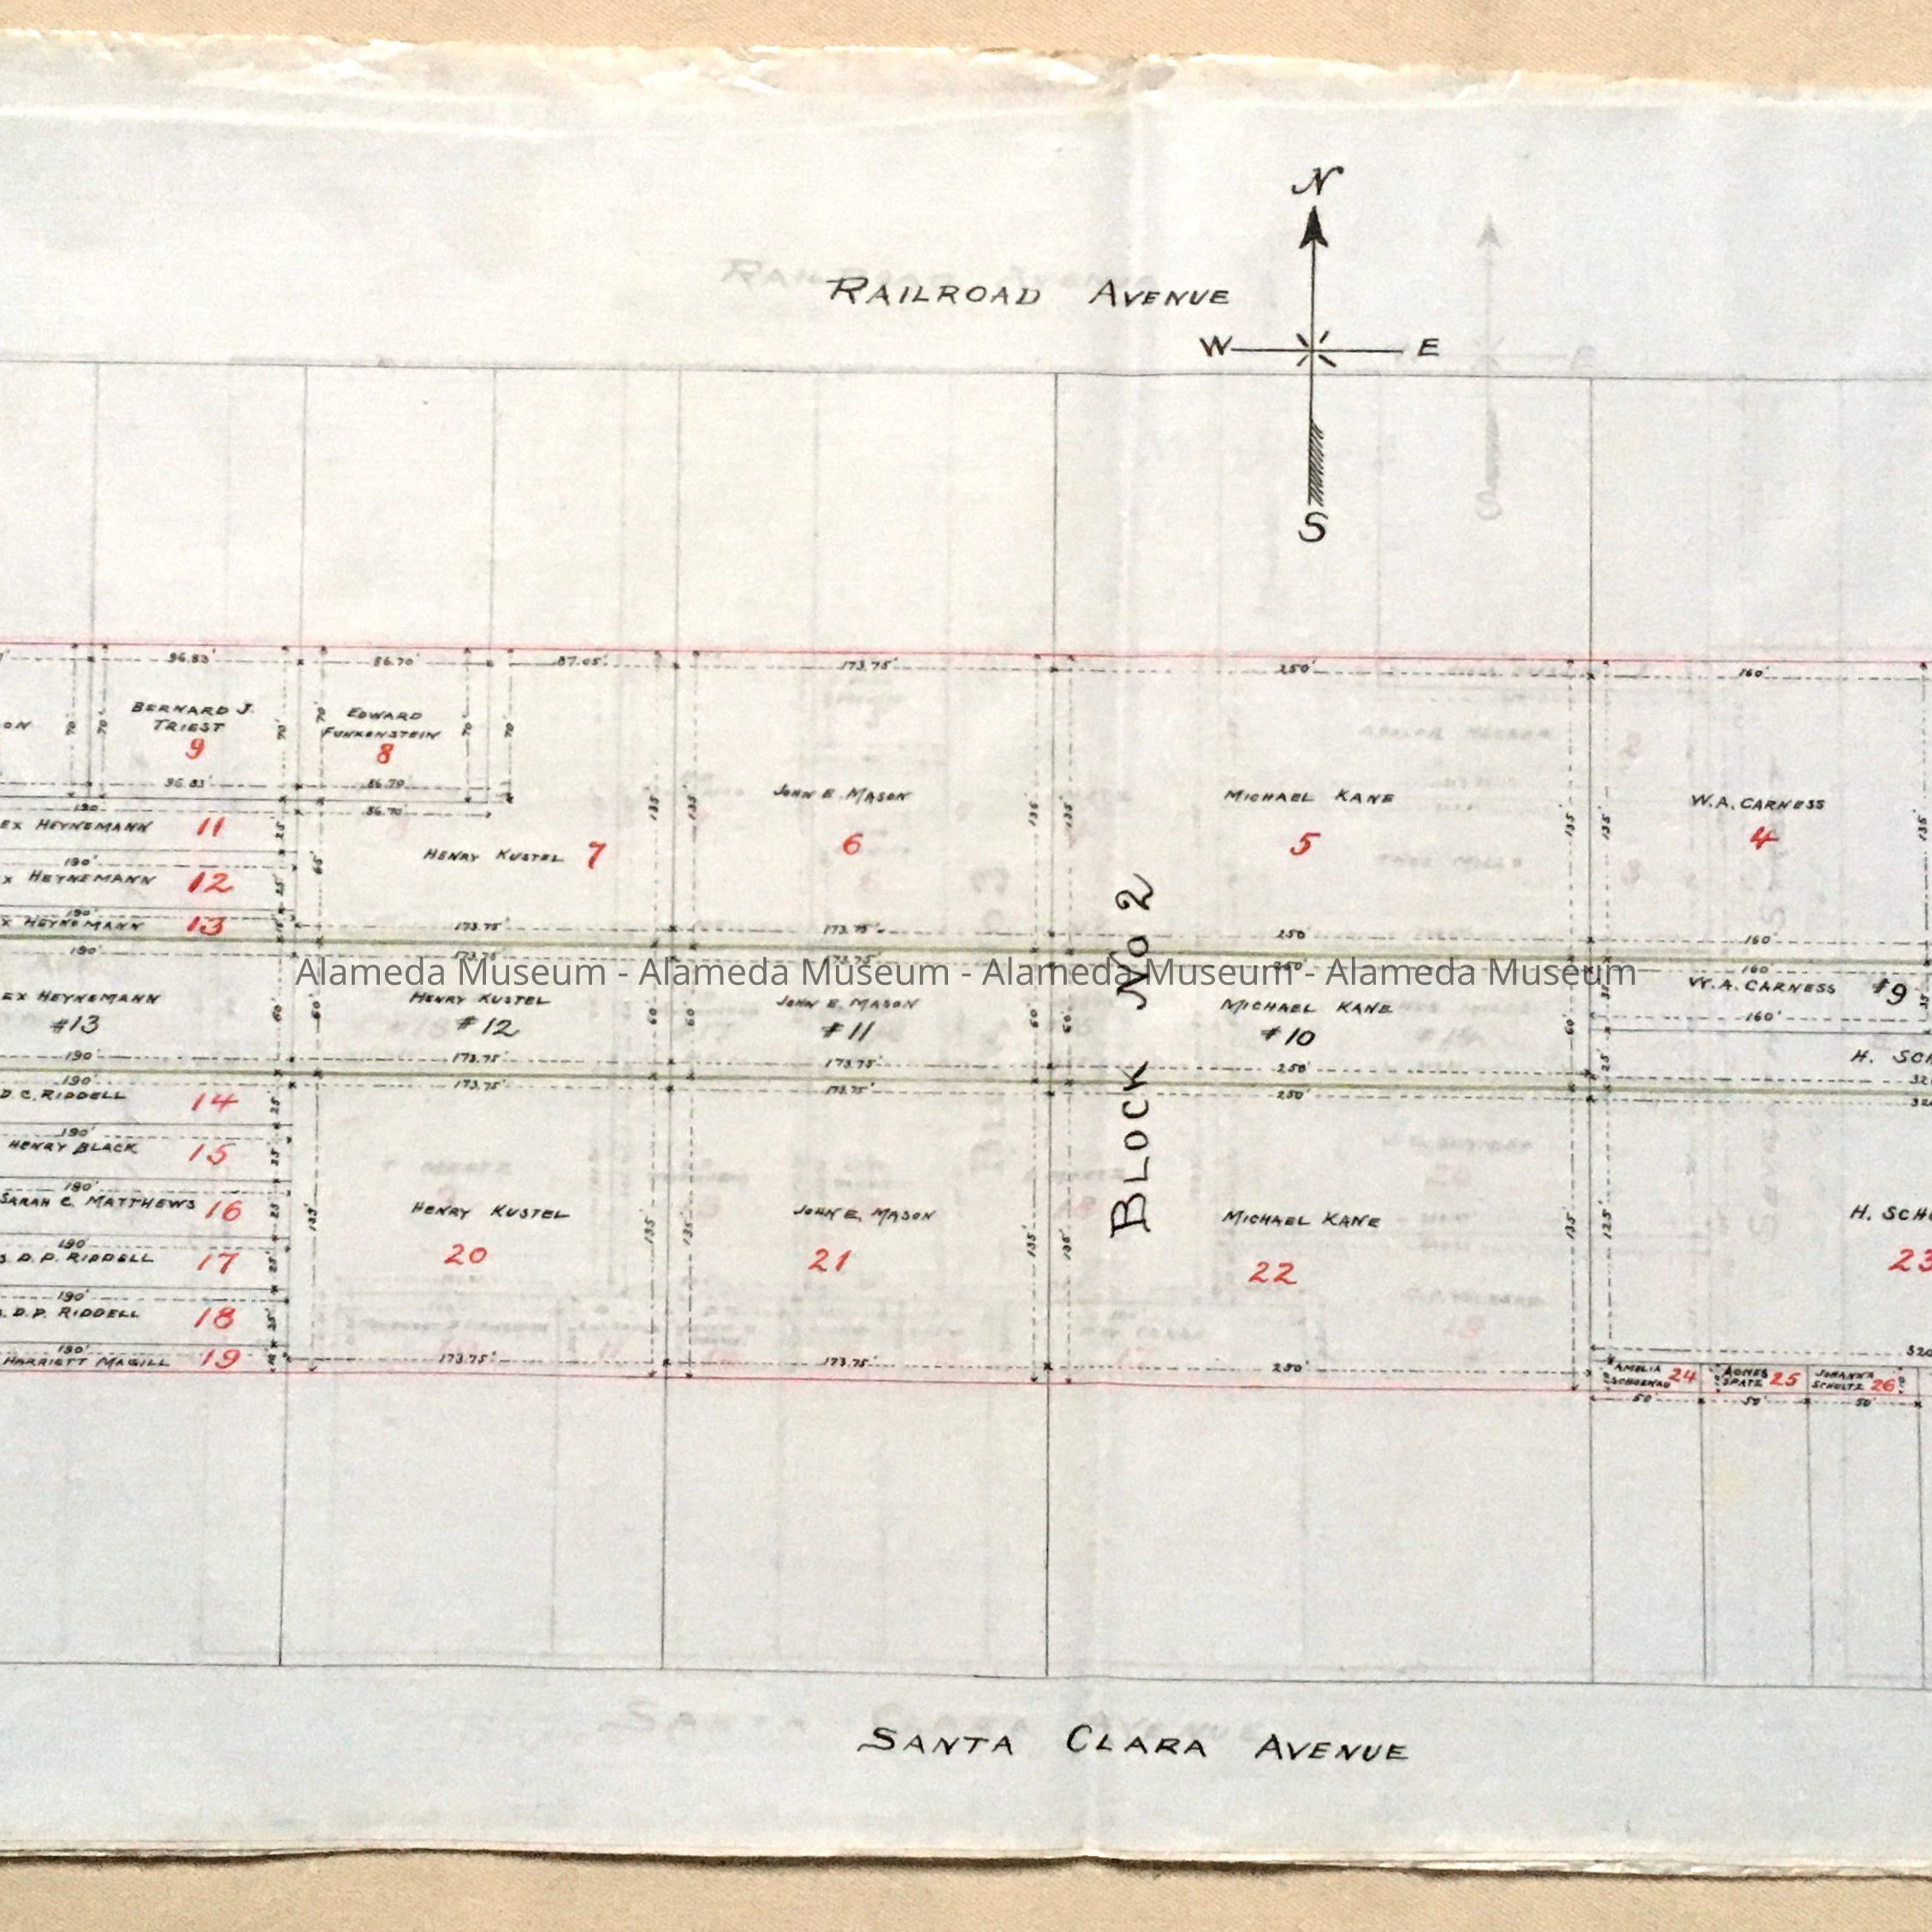 N
RAILROAD AVENUE
W E
S
96.83' 86.70' 87.05' 173.75' 250' 160'
BERNARD J.
TRIEST
9
70' 70' 70'
96.83'
EDWARD
FUNKENSTEIN
8
70' 70' 70'
86.70'
86.70'
190
EX HEYNEMANN 11
25
190'
X HEYNEMANN 12
25
190'
X HEYNEMANN 13
HENRY KUSTEL 7
65' 135'
173.75'
JOHN E. MASON
6
135' 135'
173.75'
MICHAEL KANE
5
135' 135'
250'
W.A. CARNESS
4
135' 135'
160'
BLOCK No 2
190' 173.75' 173.75' 250' 160'
Alameda Museum - Alameda Museum - Alameda Museum - Alameda Museum
EX HEYNEMANN
#13
60'
190'
HENRY KUSTEL
#12
60' 60'
173.75'
JOHN E. MASON
#11
60' 60'
173.75'
MICHAEL KANE
#10
60' 60'
250'
W.A. CARNESS #9
160'
H. SCH
25'
190' 173.75' 173.75' 250'
D.C. RIDDELL 14
25
190'
HENRY BLACK 15
25
190'
SARAH C. MATTHEWS 16
25
190'
D.P. RIDDELL 17
25'
190'
D.P. RIDDELL 18
25'
190'
HARRIETT MAGILL 19
HENRY KUSTEL
20
135' 135'
173.75'
JOHN E. MASON
21
135' 135'
173.75'
MICHAEL KANE
22
135' 135'
250'
H. SCH
23
125'
320
AMELIA
SCHOENAU 24
50'
AGNES
SPATZ 25
50'
JOHANNA
SCHULTZ 26
50'
SANTA CLARA AVENUE